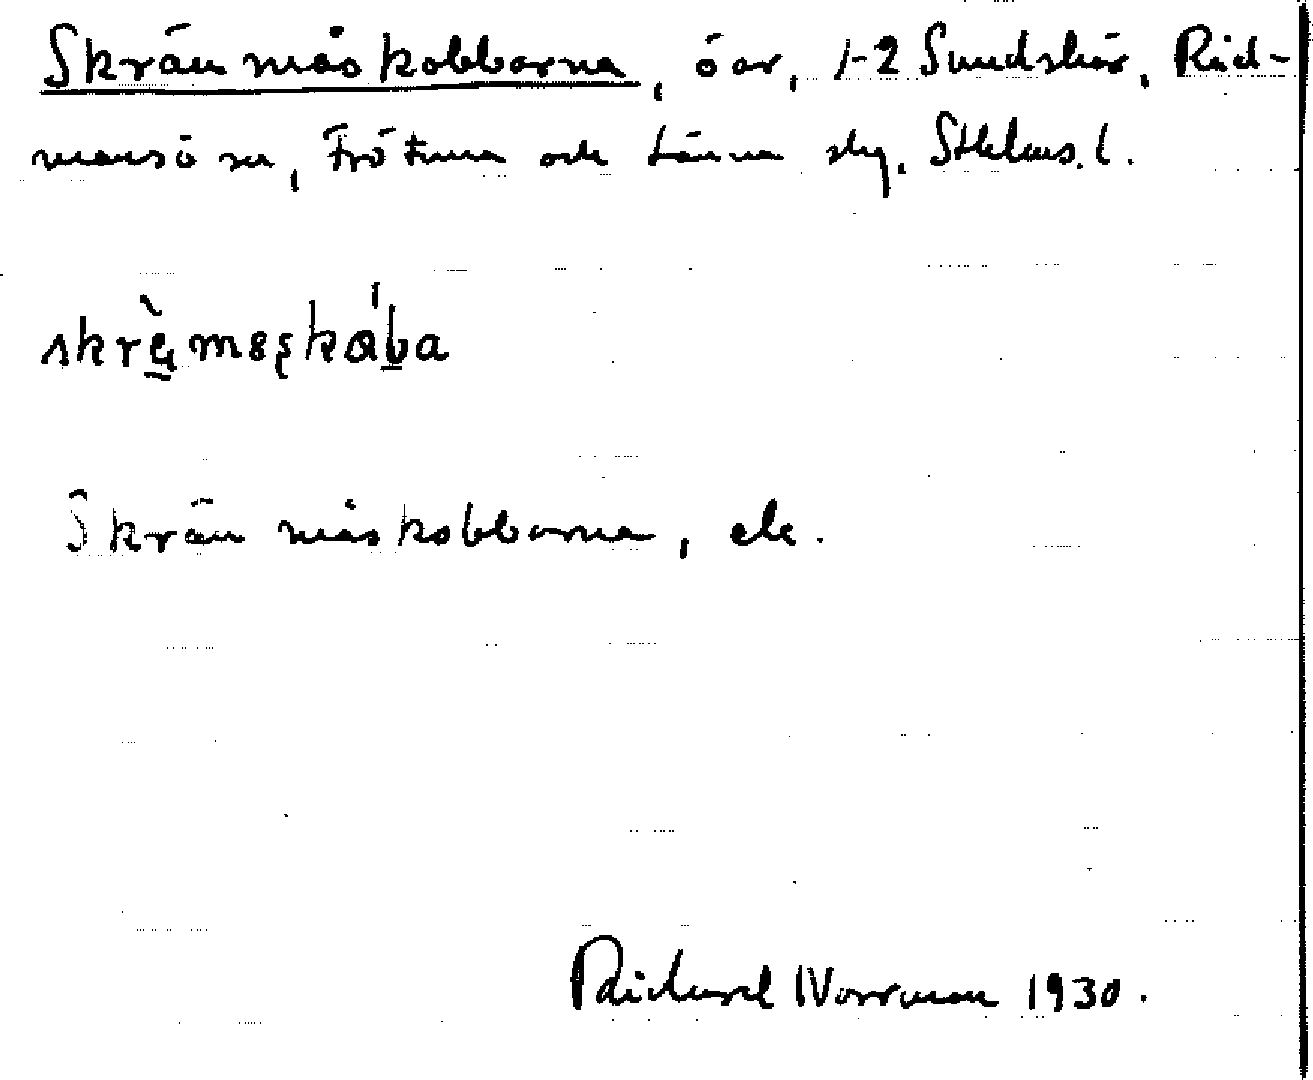 Skränmåskobbarna, öar, 1-2 Sundskär, Räd-
mansö sn, Frötuna och Länna skg. Sthlms. l.
Skränmåskobbarna, ek.
Rickard Norrman 1930.